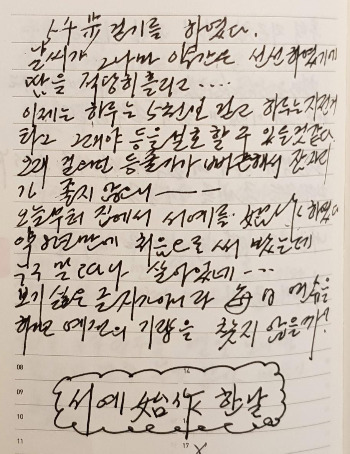 5千步 걷기를 하였다.
날씨가 그나마 약간은 선선하였기에
땀을 적당히 흘리고....
이제는 하루는 5천보 걷고 하루는 자전거
타고 그래야 등을 보호할 수 있을것같다
오래 걸으면 등줄기가 뻐근해서 잠자리
가 좋지 않으니 ———
오늘부터 집에서 서예를 始作 하였다
약 8년만에 처음으로 써 봤는데
아직 살아있네 ---
보기 싫은 글자가 아니라 每日 연습을
하면 예전의 기량을 찾지 않을까?
08
14
09
서예 始作 한날
10
11
17